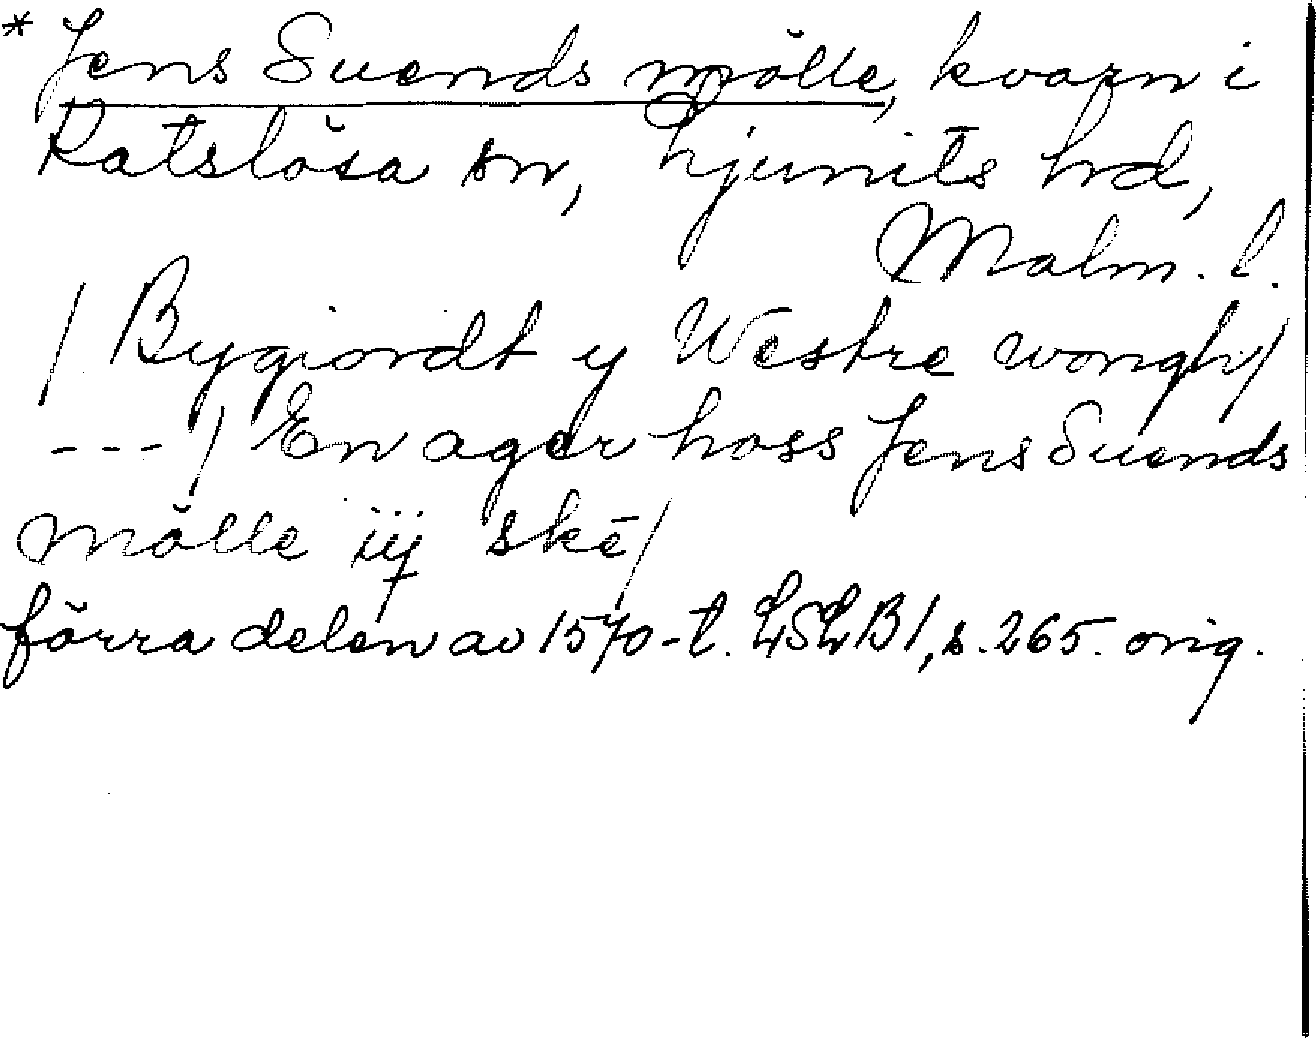 * Jens Suends mölle, kvarn i
Katslösa sn, Ljunits hd,
Malm. l.
/ Bygiordt y Westre wongh/
--- / En ager hoss Jens Suends
mölle iij skē/
förra delen av 1570-t. LSLB1, s. 265. orig.